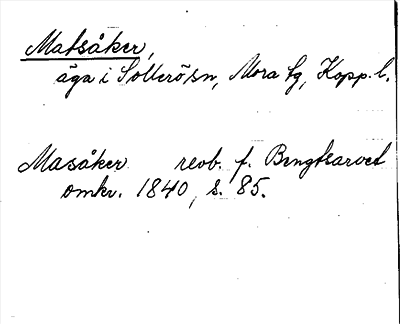 Matsåker,
äga i Sollerö sn, Mora tg, Kopp. l.
Masåker revb. f. Bengtsarvet
omkr. 1840, s. 85.